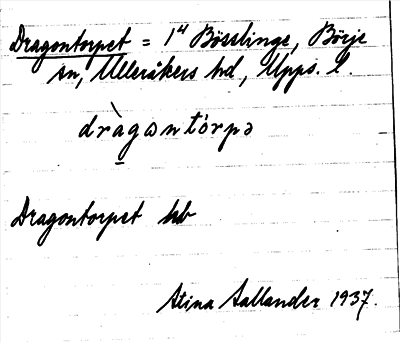 Dragontorpet = 1⁴ Bösslinge, Börje
sn, Ulleråkers hd, Upps. l.
dràgωntórpə
Dragontorpet hb
Stina Sallander 1937.